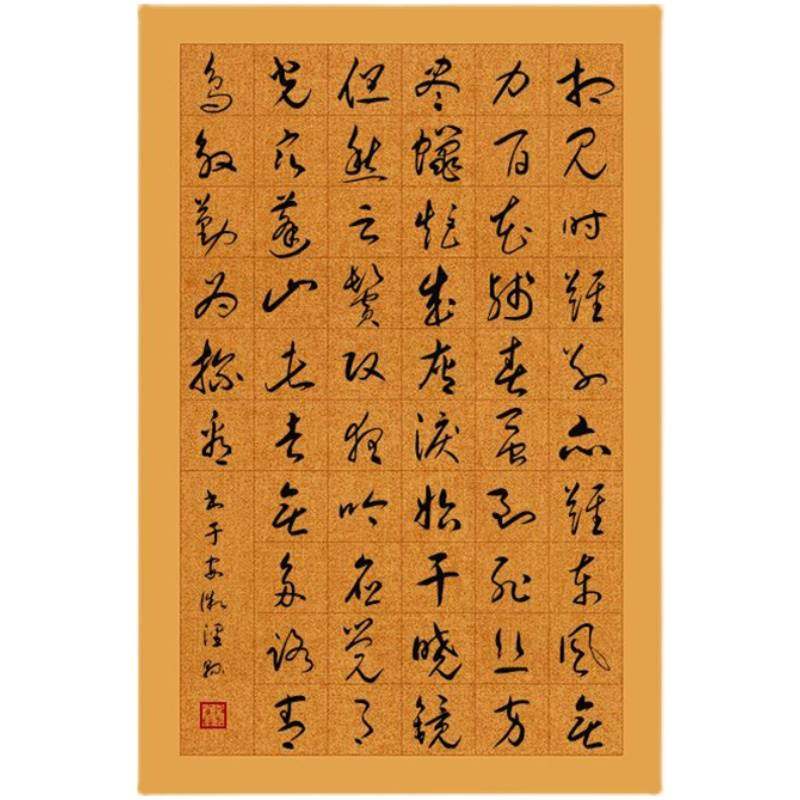 相见时难别亦难东风无
力百花残春蚕到死丝方
尽蜡炬成灰泪始干晓镜
但愁云鬓改夜吟应觉月
光寒蓬山此去无多路青
鸟殷勤为探看
书于安徽泾县